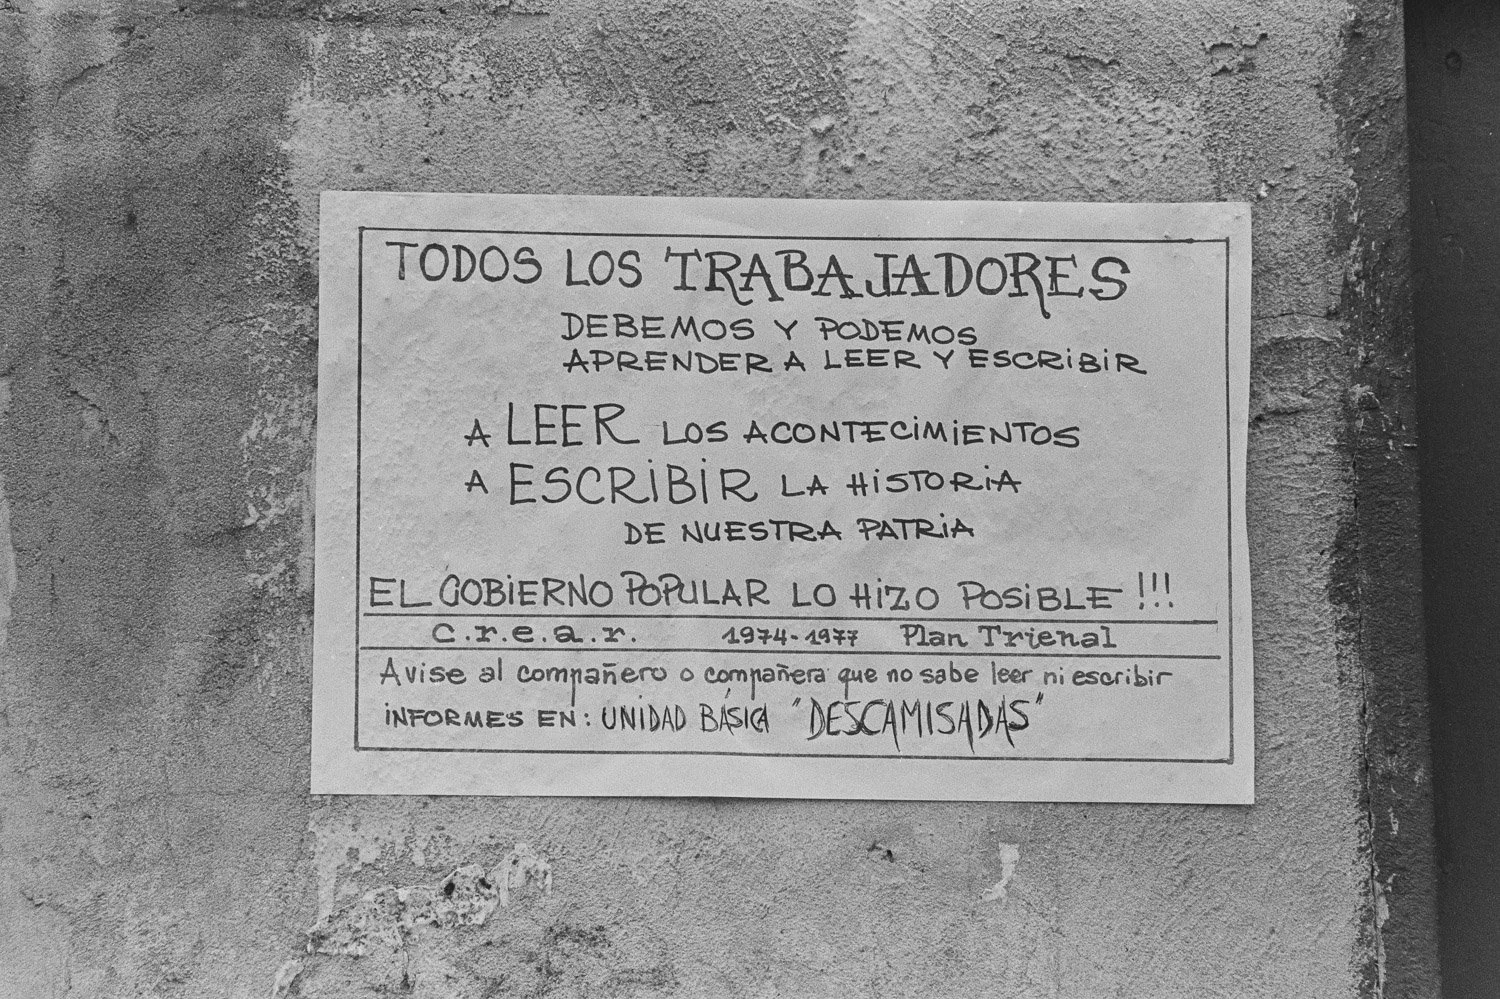 TODOS LOS TRABAJADORES
DEBEMOS Y PODEMOS
APRENDER A LEER Y ESCRIBIR
A LEER LOS ACONTECIMIENTOS
A ESCRIBIR LA HISTORIA
DE NUESTRA PATRIA
EL GOBIERNO POPULAR LO HIZO POSIBLE!!!
c.r.e.a.r. 1974-1977 Plan Trienal
Avise al compañero o compañera que no sabe leer ni escribir
INFORMES EN: UNIDAD BÁSICA "DESCAMISADAS"